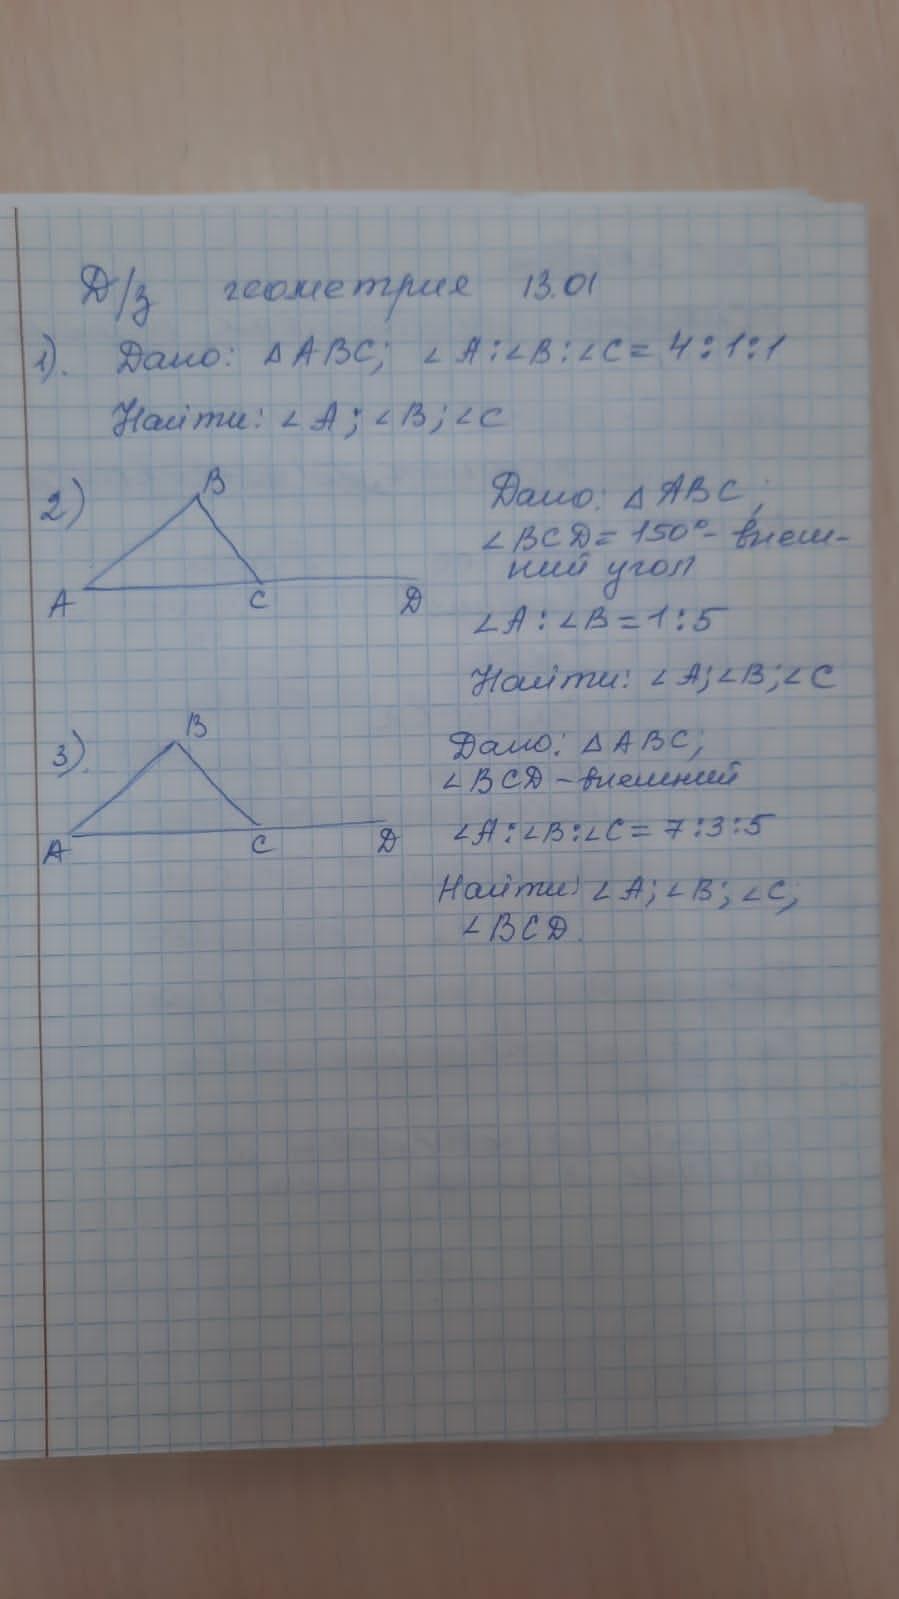 Д/з геометрия 13.01
1). Дано: △ABC; ∠A:∠B:∠C=4:1:1
Найти: ∠A; ∠B; ∠C
2)
B
A
C
D
Дано: △ABC;
∠BCD=150°- внеш-
ний угол
∠A:∠B=1:5
Найти: ∠A;∠B;∠C
3).
B
A
C
D
Дано: △ABC;
∠BCD-внешний
∠A:∠B:∠C=7:3:5
Найти: ∠A;∠B;∠C;
∠BCD.